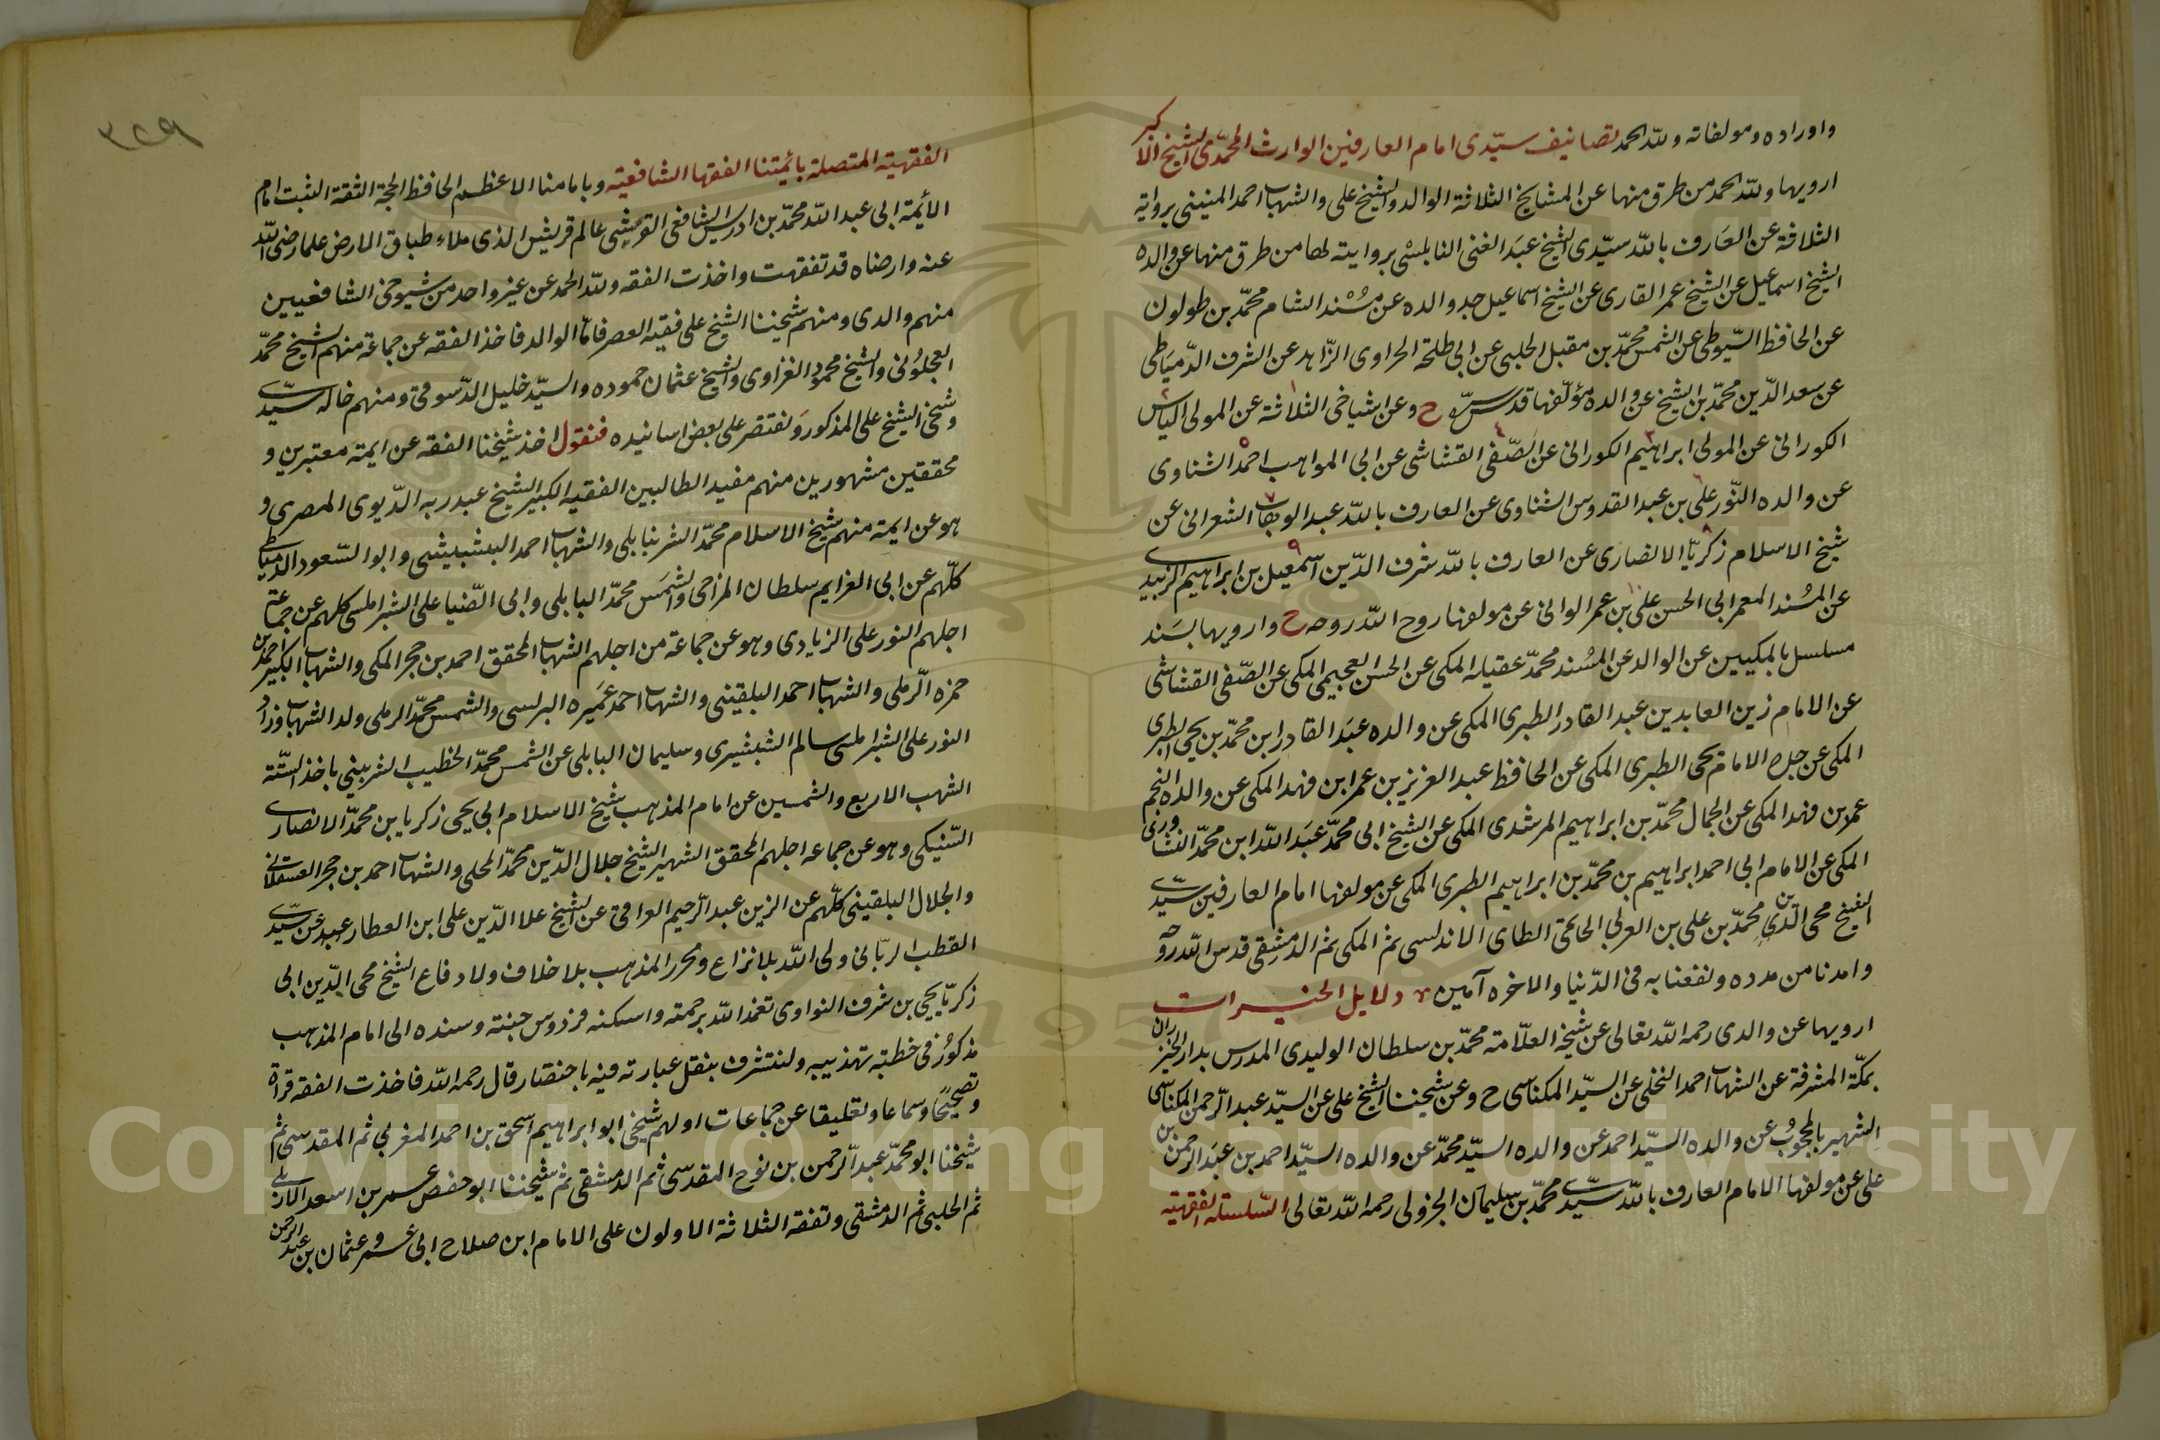 واوراده ومولفاته ولله الحمد تصانيف سيّدى امام العارفين الوارث المحمّدى الشيخ الاكبر
ارويها ولله الحمد من طرق منها عن المشايخ الثلاثة الوالد والشيخ على والشهاب احمد المنينى برواية
الثلاثة عن العارف بالله سيّدى الشيخ عبد الغنى النابلسى بروايته لها من طرق منها عن والده
الشيخ اسماعيل عن الشيخ عمر القارى عن الشيخ اسماعيل جد والده عن مُسْند الشام محمّد بن طولون
عن الحافظ السّيوطى عن الشمس محمّد بن مقبل الحلبى عن ابى طلحة الحراوى الزّاهد عن الشرف الدّمياطى
عن سعد الدّين محمّد بن الشيخ عن والده مؤلّفها قدس سره ح وعن اشياخى الثلاثة عن المولى الياس
الكورانى عن المولى ابراهيم الكورانى عن الصّفى القشاشى عن ابى المواهب احمد الشناوى
عن والده النّور على بن عبد القدوس الشناوى عن العارف بالله عبد الوهاب الشعرانى عن
شيخ الاسلام زكريّا الانصارى عن العارف بالله شرف الدّين اسمعيل بن ابراهيم الزبيدى
عن المُسْند المعمر ابى الحسن على بن عمر الوانى عن مولفها روح الله روحه ح وارويها بسَند
مسلسل بالمكيين عن الوالد عن المسْند محمّد عقيله المكى عن الحسن العجيمى المكى عن الصّفى القشاشى
عن الامام زين العابدين عبد القادر الطبرى المكى عن والده عبَد القادر ابن محمّد بن يحيى الطبرى
المكى عن جده الامام يحيى الطبرى المكى عن الحافظ عبد العزيز بن عمر ابن فهد المكى عن والده النجم
عمر بن فهد المكى عن الجمال محمّد بن ابراهيم المرشدى المكى عن الشيخ ابى محمّد عبَد الله ابن محمّد النشاورى
المكى عن الامام ابى احمد ابراهيم بن محمّد بن ابراهيم الطبرى المكى عن مولفها امام العارفين سيّدى
الشيخ محى الدّين محمّد بن على بن العربى الحاتمى الطاى الاندلسى ثم المكى ثم الدمشقى قدس الله روحه
وامدنا من مدده ونفعنا به فى الدّنيا والاخره آمين دلايل الخيرات
ارويها عن والدى رحمه الله تعالى عن شيخه العلّامة محمّد بن سلطان الوليدى المدرس بدار الخيزران
بمكّة المشرفة عن الشهاب احمد النخلى عن السيّد المكناسى ح وعن شيخنا الشيخ على عن السيّد عبد الرّحمن المكناسى
الشهير بالمحجوُب عن والده السيّد احمد عن والده السيّد محمّد عن والده السيّد احمد بن عبَد الرحمن بن
على عن مولفها الامام العارف بالله سيّدى محمّد بن سليمان الجزولى رحمه الله تعالى السّلسلة الفقهية
٣٢٩
الفقهيّة المتصلة بائيمتنا الفقها الشافعيّه وبامامنا الاعظم الحافظ الحجة الثقة الثبت امام
الأئمة ابى عبد الله محمّد بن ادريس الشافعى القرشى عالم قريش الذى ملاء طباق الارض علما رضى الله
عنه وارضاه قد تفقهت واخذت الفقه ولله الحمد عن غير واحد من شيوخى الشافعيين
منهم والدى ومنهم شيخنا الشيخ على فقيه العصر فامّا الوالد فاخذ الفقه عن جماعة منهم الشيخ محمّد
العجلوُنى والشيخ محمود الغزاوى والشيخ عثمان حموده والسيّد خليل الدّسوقى ومنهم خاله سيّدى
وشيخى الشيخ على المذكور وَنقتصر على بعض اسانيده فنقول اخذ شيخنا الفقه عن ايمة معتبرين و
محققين مشهورين منهم مفيد الطالبين الفقيه الكبير الشيخ عبد ربه الدّيوى المصرى و
هو عن ايمة منهم شيخ الاسلام محمّد الشرنبابلى والشهاب احمد البشبيشى وابو السّعود الدمياطى
كلّهم عن ابى العزايم سلطان المزاحى والشمَس محمّد البابلى وابى الضّيا على الشبراملسى كلهم عن جماعة
اجلهم النور على الزيادى وهو عن جماعة من اجلهم الشهاب المحقق احمد بن حجر المكى والشهاب الكبير احمد بن
حمزه الرّملى والشهاب احمد البلقينى والشهاب احمد عَميره البرلسى والشمس محمّد الرملى ولد الشهاب وزاد
النور على الشبراملسى سالم الشبشيرى وسليمان البابلى عن الشمس محمّد الخطيب الشربينى باخذ الستّة
الشهب الاربع والشمسين عن امام المذهب شيخ الاسلام ابى يحيى زكريا بن محمّد الانصارى
السّنيكى وهو عن جماعه اجلهم المحقق الشهير الشيخ جلال الدّين محمّد المحلى والشهاب احمد بن حجر العسقلانى
والجلال البلقينى كلّهم عن الزين عبد الرّحيم العراقى عن الشيخ علا الدّين على ابن العطار عن سيّدى
القطب الربّانى ولى الله بلا نزاع ومحرر المذهب بلا خلاف ولا دفاع الشيخ محى الدّين ابى
زكريّا يحيى بن شرف النواوى تغمد الله برحمته واسكنه فردوس جنته وسنده الى امام المذهب
مذكوُر فى خطبة تهذيبه ولنتشرف بنقل عبارته فيه باختصار قال رحمه الله فاخذت الفقه قراة
وتصحيحًا وسماعا وتعليقا عن جماعات اولهم شيخى ابو ابراهيم اسحق بن احمد المغربى ثم المقدسى ثم
شيخنا ابو محمّد عبد الرّحمن بن نوح المقدسى ثم الدمشقى ثم شيخنا ابو حفص عمر بن اسعد الاربلى
ثم الحلبى ثم الدمشقى وتفقه الثلاثة الاولون على الامام ابن صلاح ابى عمرو عثمان بن عبد الرحمن
Copyright © King Saud University
1957